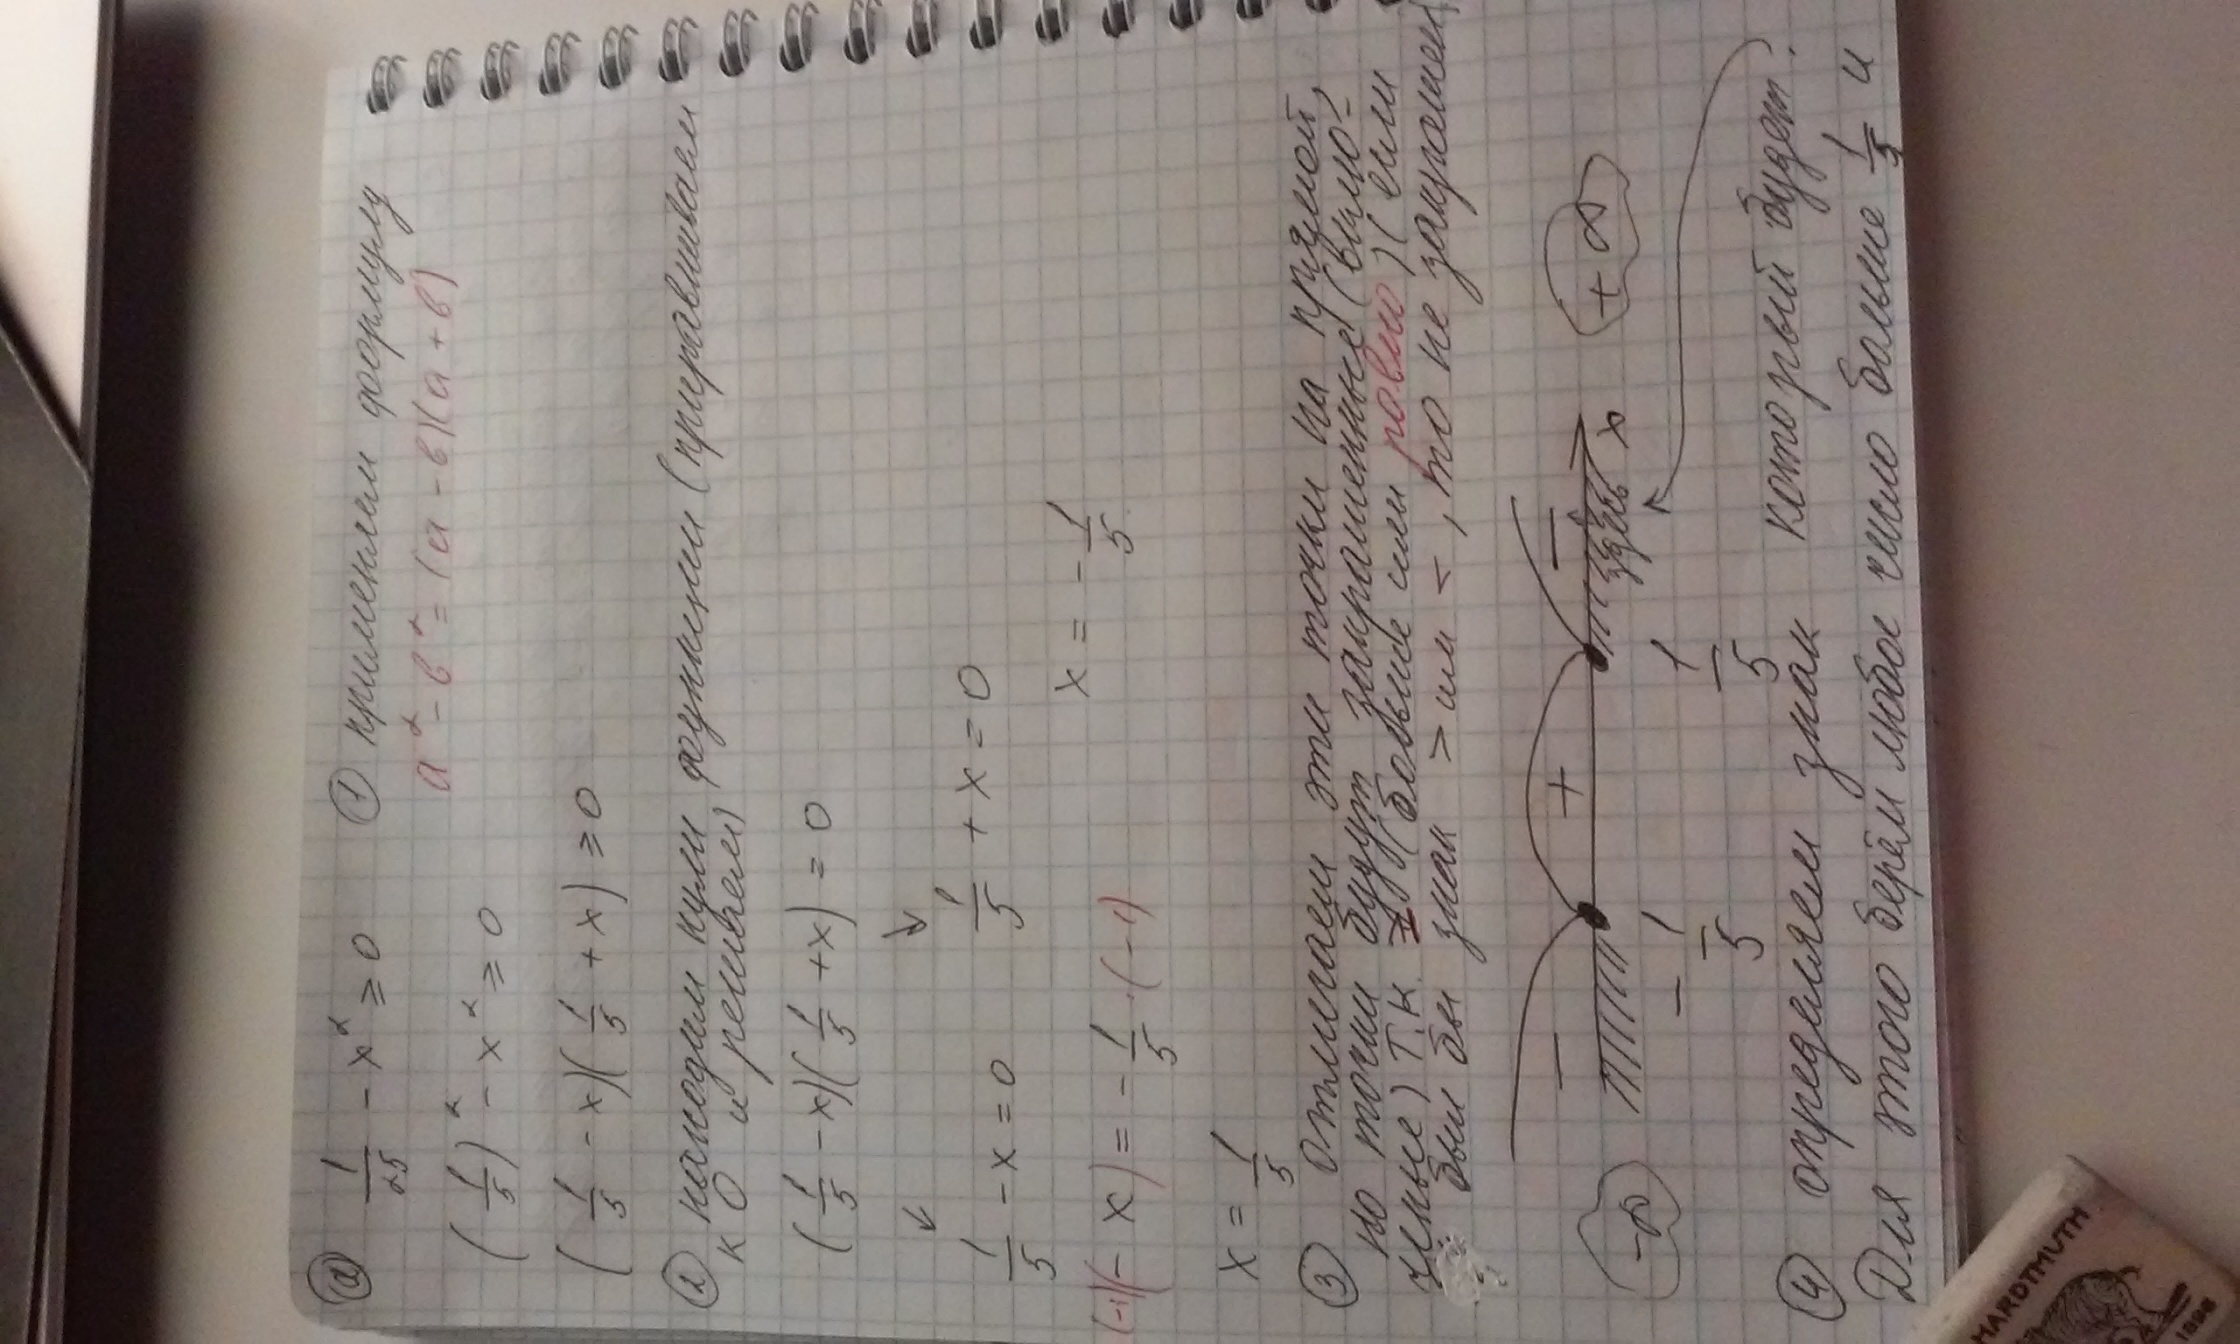 ② 1/25 - x² ≥ 0 ① применяем формулу
a² - в² = (a - в)(a + в)
(1/5)² - x² ≥ 0
(1/5 - x)(1/5 + x) ≥ 0
② находим нули функции (приравниваем
к 0 и решаем)
(1/5 - x)(1/5 + x) = 0
↓ ↓
1/5 - x = 0 1/5 + x = 0
(-1)(-x) = -1/5 · (-1) x = -1/5
x = 1/5
③ отмечаем эти точки на прямой,
но точки будут закрашенные (вклю-
ченные) т.к ≥ (больше или равно) (если
был бы знак > или <, то не закрашен)
- + -
-∞ +∞
-1/5 1/5 x
④ определяем знак который будет.
Для этого берём любое число больше 1/5 и
HARDTMUTH